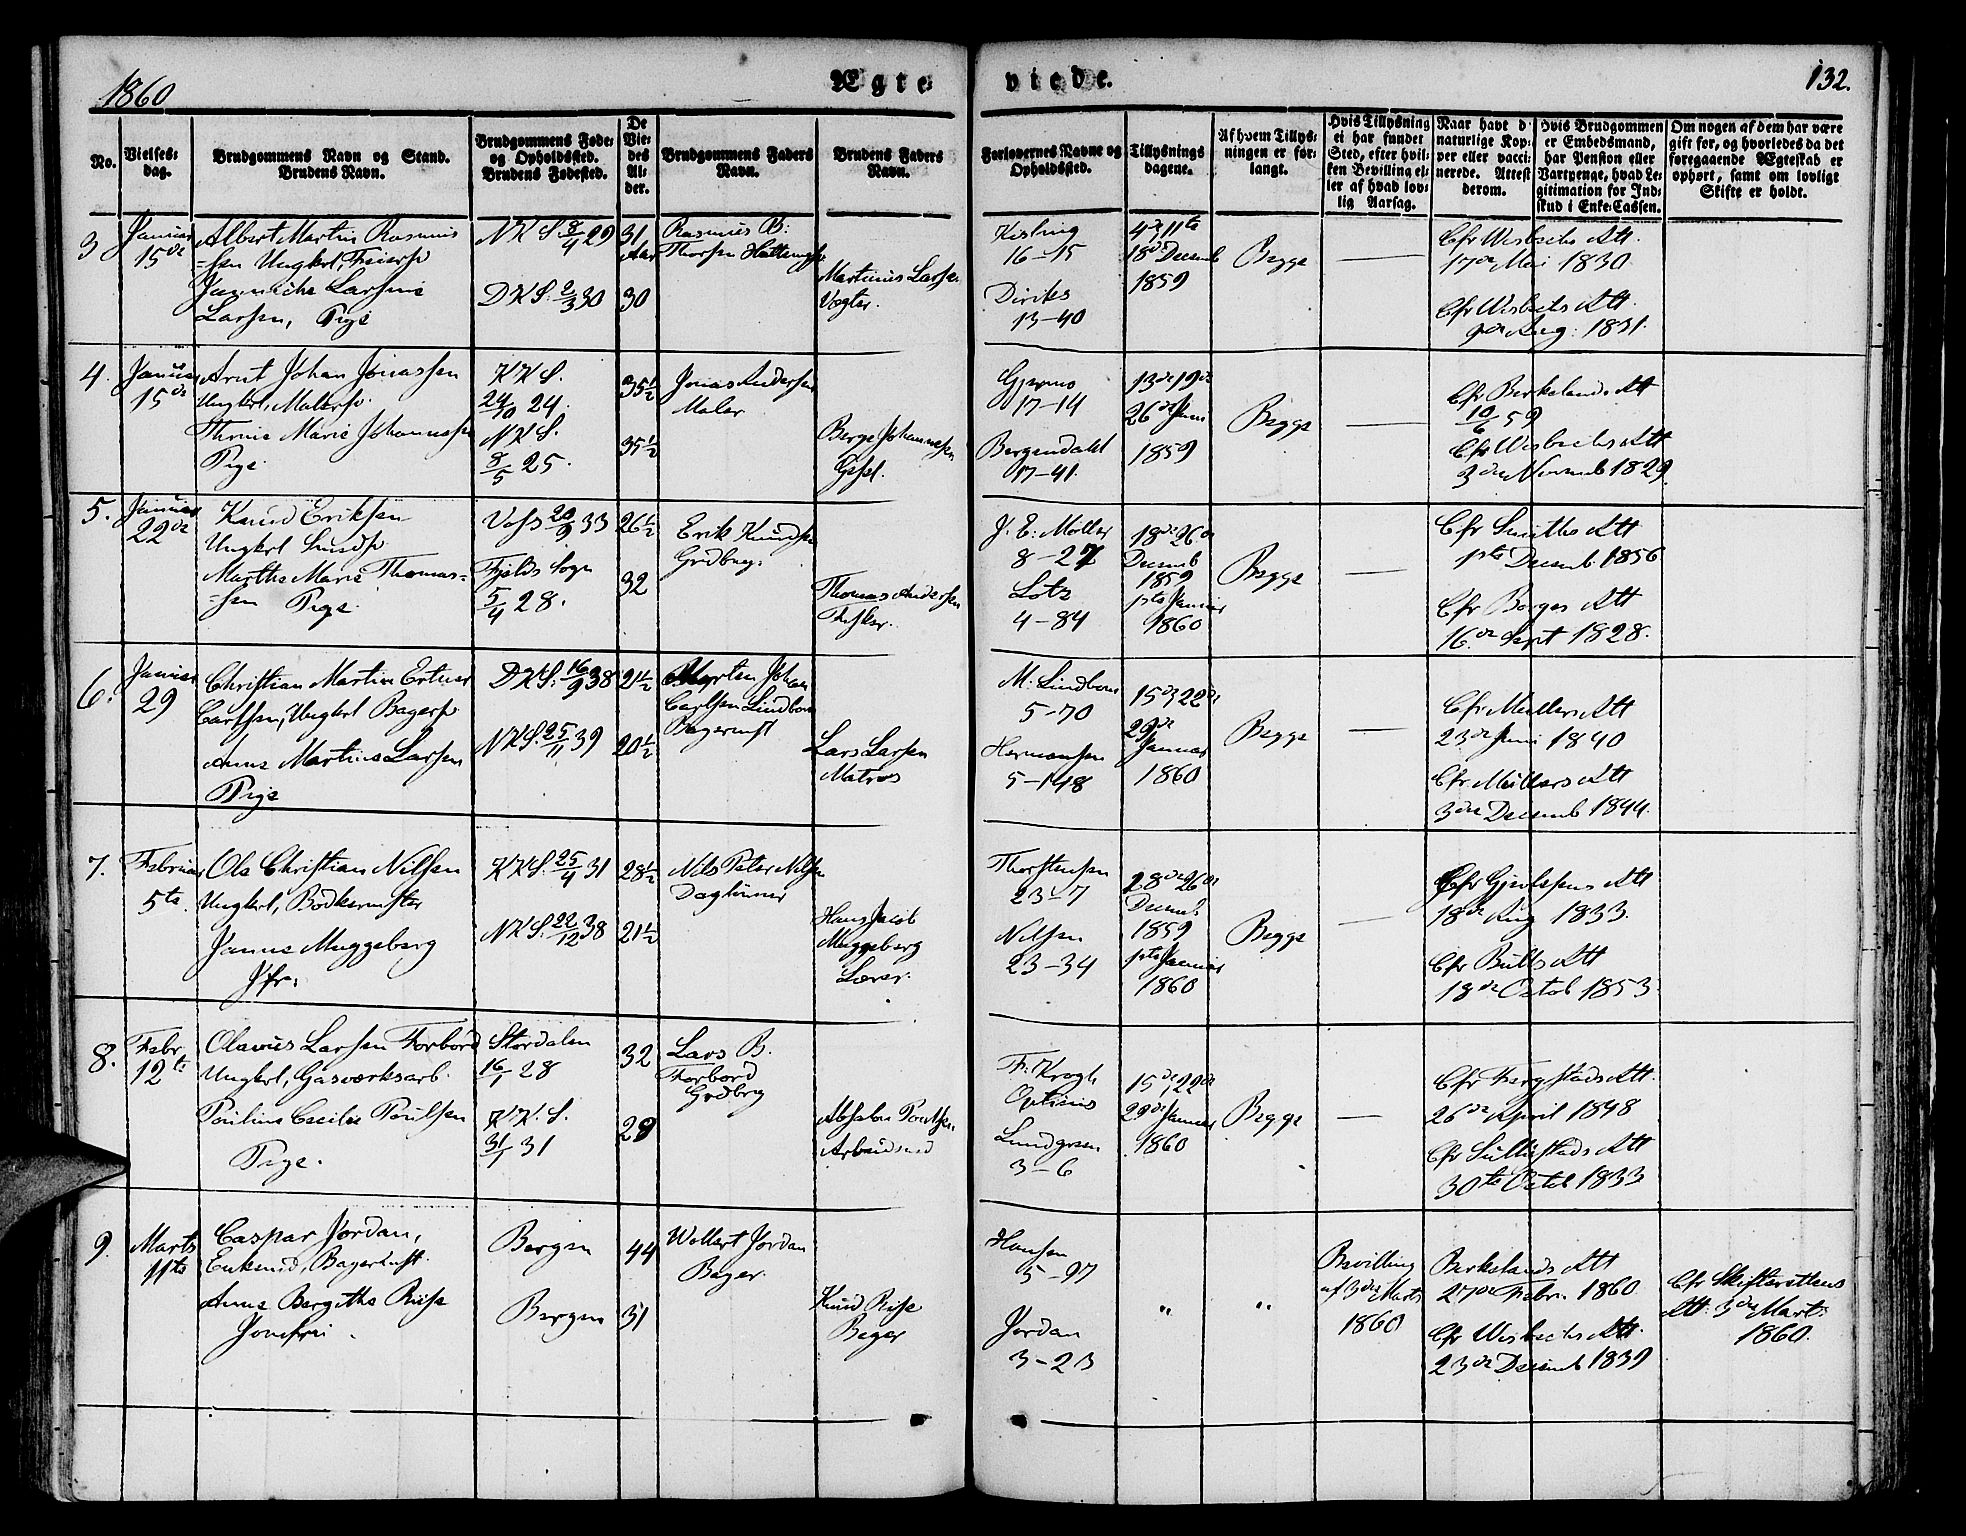 1860
Ægte viede.
132.
No.
Vielses-
dag.
Brudgommens Navn og Stand.
Brudens Navn.
Brudgommens Føde-
og Opholdssted.
Brudens Fødested.
De
Vie-
des
Al-
der.
Brudgommens Faders
Navn.
Brudens Faders
Navn.
Forlovernes Navne og
Opholdssted.
Tillysnings
dagene.
Af hvem Tillys-
ningen er for-
langt.
Hvis Tillysning
ei har fundet
Sted, efter hvil-
ken Bevilling el-
ler af hvad lov-
lig Aarsag.
Naar havt d
naturlige Kop-
per eller vacci-
nerede. Attest
derom.
Hvis Brudgommen
er Embedsmand,
har Pension eller
Vartpenge, hvad Le-
gitimation for Ind-
skud i Enke-Cassen.
Om nogen af dem har være
gift før, og hvorledes da det
foregaaende Ægteskab er
ophørt, samt om lovligt
Skifte er holdt.
3
Januar
15de
Albert Martin Rasmus
=sen Ungkrl,
Larsine
Larsen, Pige
NKS. 8/4 29
DKS. 2/3 30
31
Aar
30
Rasmus B.
Thorsen
Martinus Larsen
Vegter.
Kisling
16-15
Diriks
13-40
4de 11te
18de Decemb
1859
Begge
—
Cfr Wisbechs Att.
17de Mai 1830.
Cfr Wisbechs Att
9de Aug: 1831.
4.
Januar
15de
Arnt Johan Jonassen
Ungkrl. Malersv.
Marie Johannessen
Pige
KKS.
24/10 24.
NKS.
8/5 25.
35½
35½
Jonas Andersen
Maler
Berge Johannessen
Gesel.
17-14
Bergendahl
17-41.
13de 19de
26de Juni
1859
Begge
—
Cfr Birkelands Att
10/6 59
Cfr Wisbechs Att
3die Novemb 1829.
5.
Januar
22de
Knud Eriksen
Ungkrl Smedsv
Marthe Marie Thomas=
=sen Pige.
Voss 20/9 33
Fjelds Sogn
5/4 28.
26½
32
Erik Knudsen
Grdbrug.
Thomas Andersen
Fisker.
J. E. Møller
8-27
Lotz
4-84
18de 26de
Decemb
1859
1ste Januar
1860
Begge
—
Cfr Smiths Att
1ste Decemb. 1856
Cfr Borges Att
16.de Sept 1828.
6.
Januar
29
Christian Martin
Carlsen, Ungkrl Bagersv
Anne Martine Larsen
Pige
DKS. 16/9 38
NKS. 25/11 39
21½
20½
Morten Johan
Carlsen Lindbom
Bagermst
Lars Larsen
Matros
M. Lindbom
5-70
Hermansen
5-148
15de 22de
29de
Januar
1860
Begge
—
Cfr Müllers Att
23de Juni 1840
Cfr Müllers Att
3die Decemb 1844.
7.
Februar
5te.
Ole Christian Nilsen
Ungkrl, Bødkermester
Janne Muggeberg
Jfr.
KKS. 25/4 31
NKS. 22/12 38
28½
21½
Nils Peter Nilsen
Daglönner
Hans Jacob
Muggeberg
Lærer.
Thorstensen
23-7
Nilsen
23-34
18de 26de
Decemb
1859
1ste Januar
1860
Begge
—
Cfr Gjertsens Att
18de Aug 1833.
Cfr Bulls Att
18de Octob 1853.
8.
Febr
12te
Olavus Larsen Forbord
Ungkrl, Gasværksarb.
Pouline Cecilie Poulsen
Pige.
Stordalen
16/1 28
K.K.S.
31/1 31
32
29
Lars B.
Forbord
Grdbrg
Absalon Poulsen
Arbeidsmd
F. Krogh
Opticus
Lundgreen
3-6
15de, 22de
29de Januar
1860
Begge
—
Cfr Att.
26de April 1848
Cfr Att
30te Octob 1833
9.
Marts
11te
Caspar Jordan,
Enkemd, Bagermst.
Anne Bergithe Riise
Jomfrue.
Bergen
Bergen
44
31
Wollert Jordan
Bager.
Knud Riise
Bager
Hansen
5-97
Jordan
3-23
"
"
Bevilling
af 3die Marts
1860
Birkelands Att
27de Febr. 1860.
Cfr Wisbechs Att.
23de Decemb 1839
Cfr Skifterettens
Att: 3die Marts
1860.